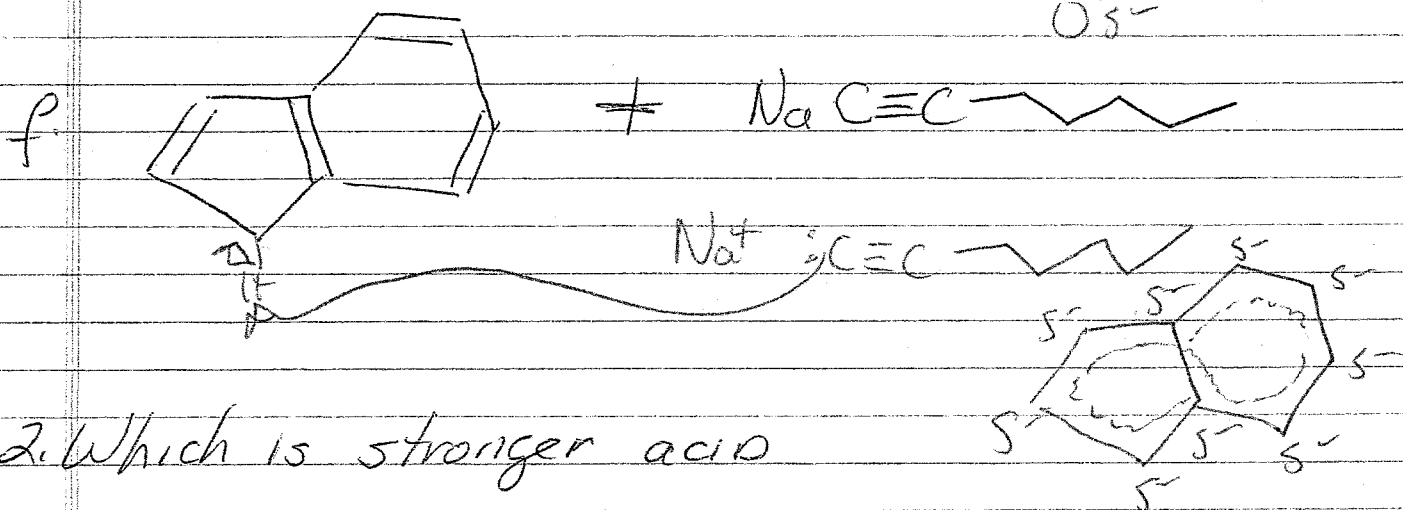 Oδ-
f. + Na C≡C
Na+ :C≡C
H
δ- δ-
δ- δ-
δ-
δ- δ- δ-
δ-
2. Which is stronger acid